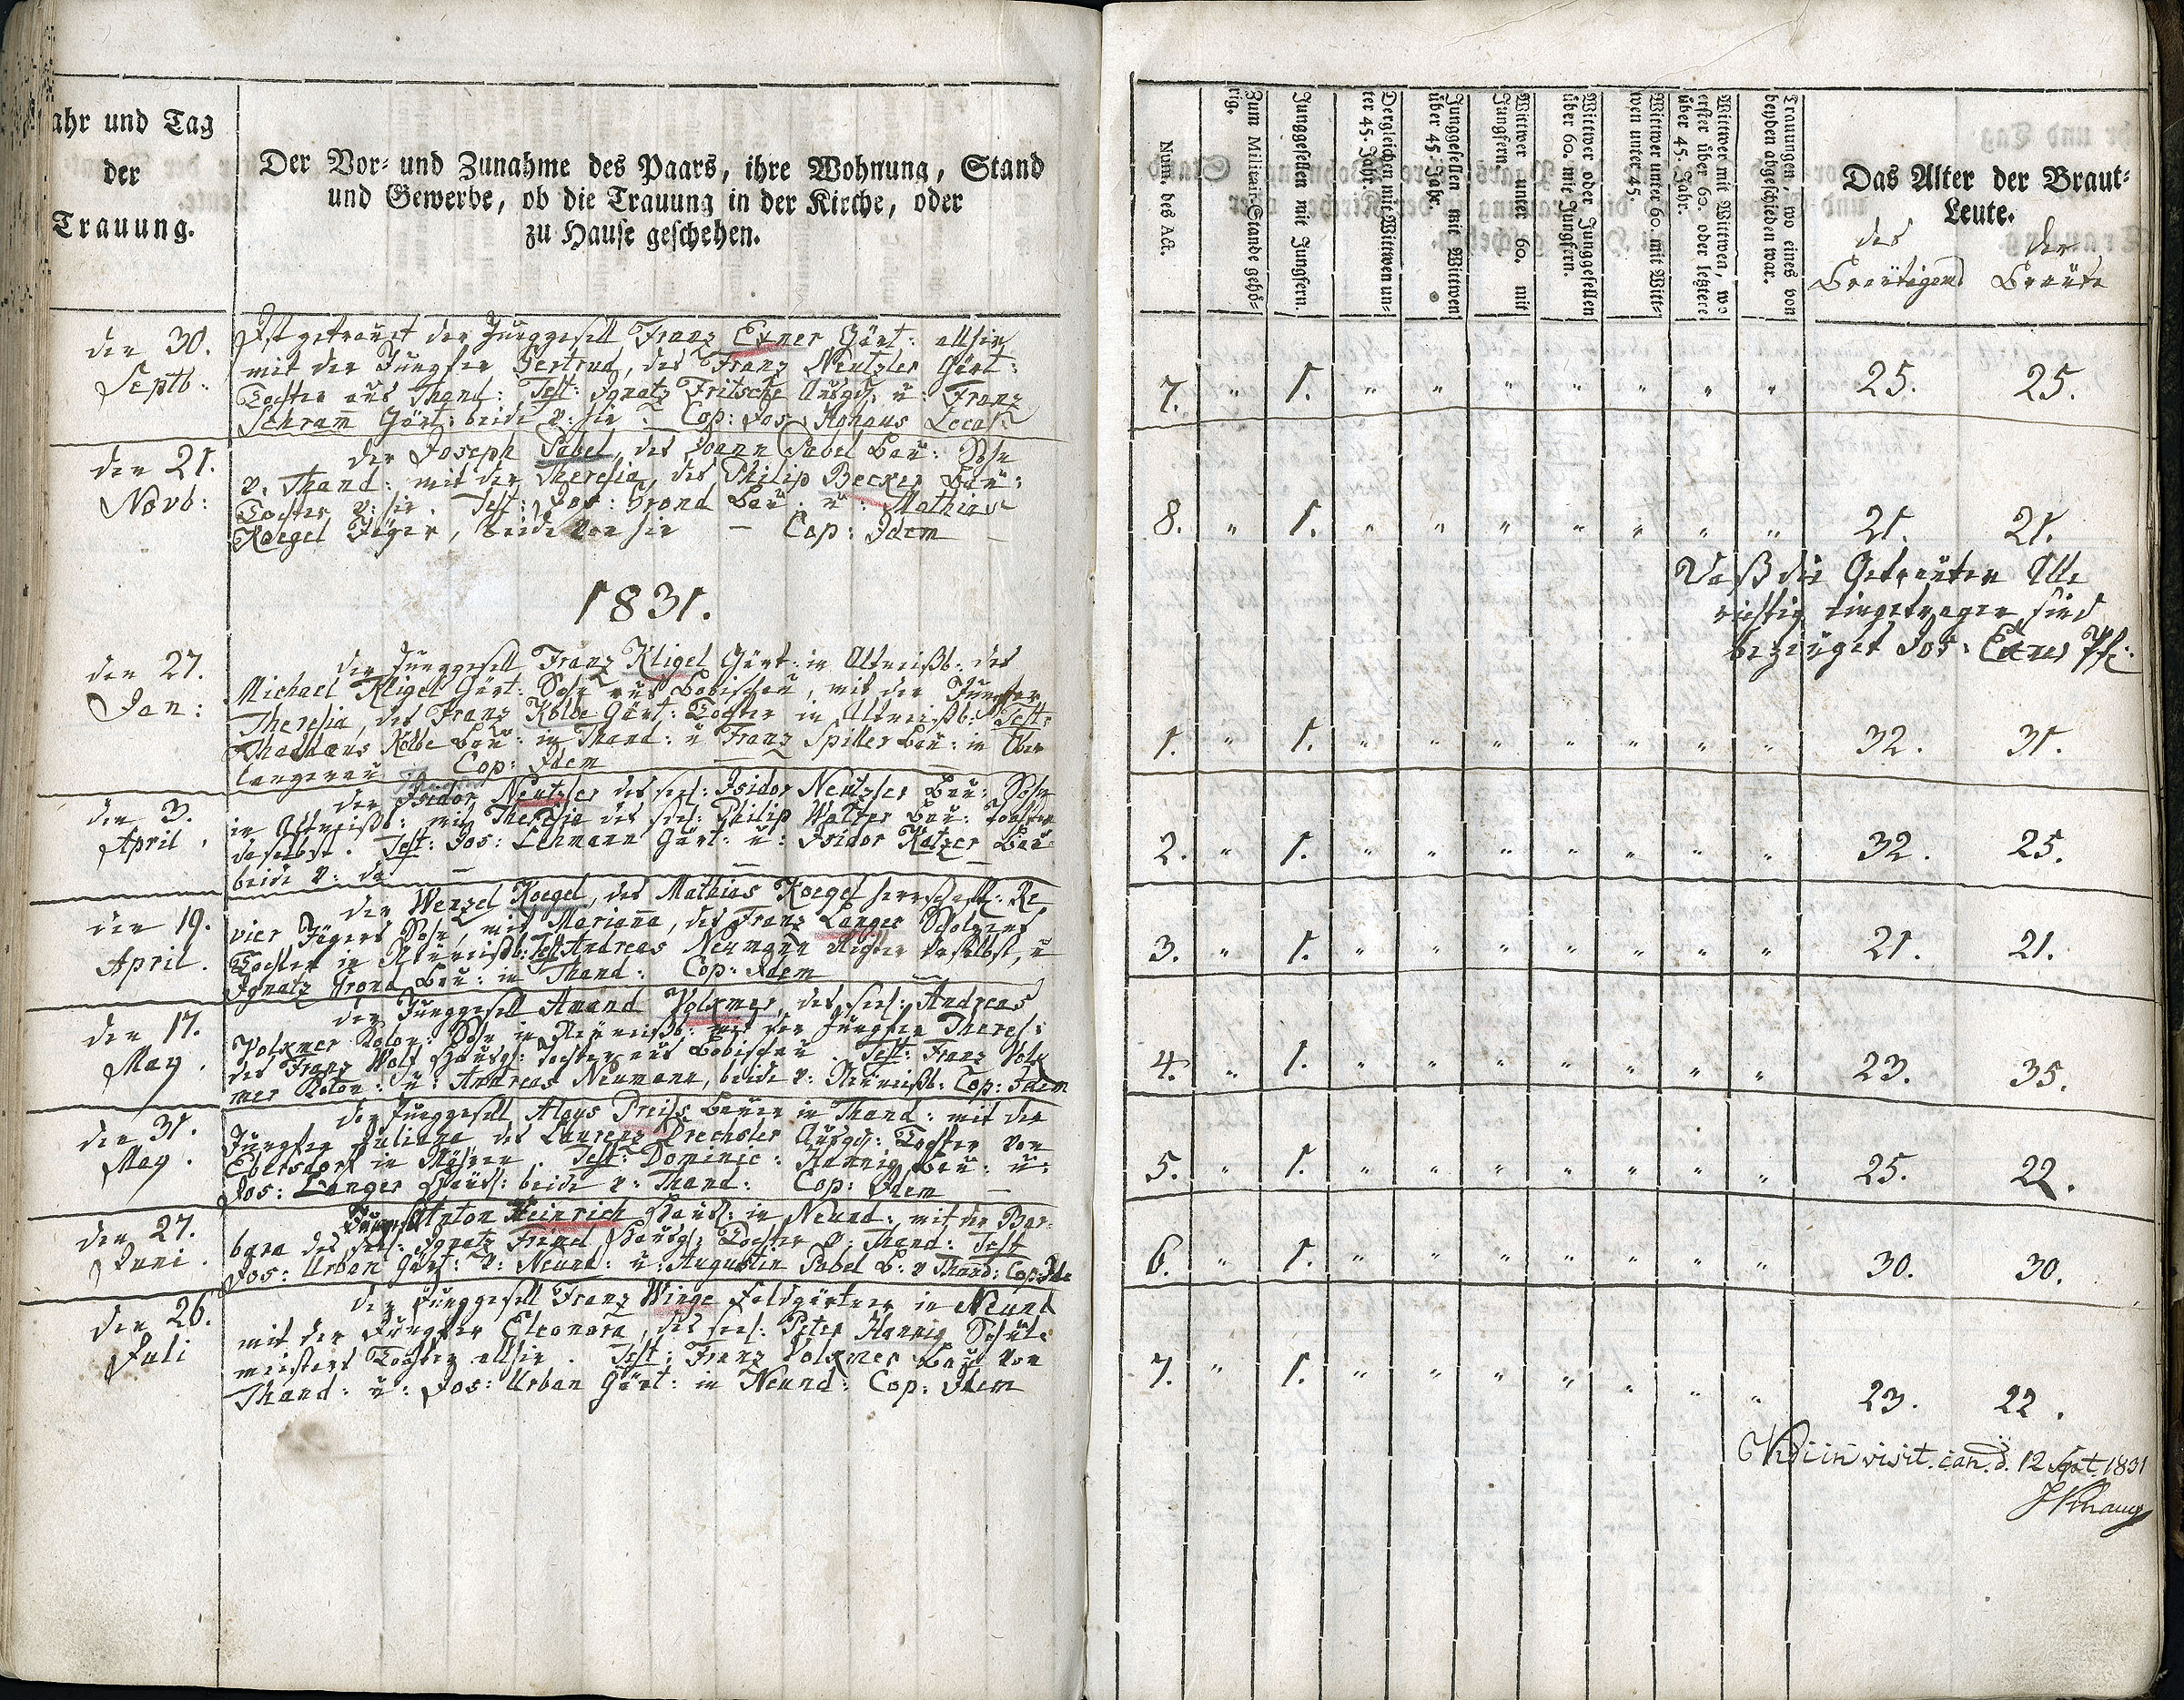 ahr und Tag
der
Trauung.
Der Vor- und Zunahme des Paars, ihre Wohnung, Stand
und Gewerbe, ob die Trauung in der Kirche, oder
zu Hause geschehen.
den 30.
Septb:
Ist getrauet der Junggesell Franz Exner Gärt: allhie
mit der Jungfer Gertrud, des Franz Neutzler Gärt:
Tochter aus Thand: Test: Ignatz Fritsche Ausged: u: Franz
Schram̄ Gärt: beide v: hie. Cop: Jos: Honaus Local:
den 21.
Novb:
der Joseph Pabel, des Joann Pabel Bau: Sohn
v. Thand: mit der Theresia, des Philip Becker Bau:
Tochter v: hie. Test: Jos: Grond Bau: u: Mathias
Koegel Jäger, beide von hie – Cop: Idem
1831.
den 27.
Jan:
der Junggesell Franz Kligel Gärt: in Altweißb: des
Michael Kligel Gärt: Sohn aus Bobischau, mit der Jungfer
Theresia, des Franz Kolbe Gärt: Tochter in Altweißb: Test:
Thaddæus Kolbe Bau: in Thand: u Franz Spiller Bau: in Ober
langenau Cop: Idem
den 3.
April.
der Isidor Neutzler des seel: Isidor Neutzler Bau: Sohn
in Altweißb: mit Theresia des seel: Philip Walter Bau: Tochter
daselbst. Test: Jos: Lehmann Gärt: u: Isidor Katzer Bau:
beide v: da –
den 19.
April.
der Wenzel Koegel, des Mathias Koegel herrschaftl: Re
vier Jägers Sohn, mit Mariana, des Franz Langer Scholzens
Tochter in Neuweißb: Test: Andreas Neumann Richter daselbst, u
Ignatz Grond Bau: in Thand: Cop: Idem
den 17.
May.
der Junggesell Amand Volkmer, des seel: Andreas
Volkmer Kolon: Sohn in Neuweißb: mit der Jungfer Theres:
des Franz Wolf Häusg: Tochter aus Bobischau. Test: Franz Volk
mer Kolon: u: Andreas Neumann, beide v: Neuweißb: Cop: Idem
den 31.
May.
der Junggesell Aloys Preiss Bauer in Thand: mit der
Jungfer Juliana des Laurenz Drechsler Ausged: Tochter von
Ebersdorf in Mähren. Test: Dominic: Hannig Bau: u:
Jos: Langer Häusl: beide v: Thand: Cop: Idem –
den 27.
Juni.
Jungg: Anton Heinrich Häusl: in Neund: mit der Bar
bara des seel: Ignatz Häusg: Tochter v: Thand: Test
Jos: Urban Gärt: v: Neund: u: Augustin Pabel B: v Thand: Cop: Ide
den 26.
Juli
der Junggesell Franz Winge Feldgärtner in Neund
mit der Jungfer Eleonora, des seel: Peter Hannig Schul:
meisters Tochter allhie. Test: Franz Volkmer Bau von
Thand: u: Jos: Urban Gärt: in Neund: Cop: Idem
Num. des Act.
Zum Militair-Stande gehö-
rig.
Junggesellen mit Jungfern.
Dergleichen mit Wittwen un-
ter 45. Jahr.
Junggesellen mit Wittwen
über 45. Jahr.
Wittwer unter 60. mit
Jungfern.
Wittwer oder Junggesellen
über 60. mit Jungfern.
Wittwer unter 60. mit Witt-
wen unter 45.
Wittwer mit Wittwen, wo
erster über 60. oder letztere
über 45. Jahr.
Trauungen, wo eines von
beyden abgeschieden war.
Das Alter der Braut-
Leute.
des der
Bräutigams Bräute
7. " 1. " " " " " " " 25. 25.
8. " 1. " " " " " " " 21. 21.
Daß die Getrauten Alle
richtig eingetragen sind
bezeuget Jos: Exner Pf:
1. " 1. " " " " " " " 32. 31.
2. " 1. " " " " " " " 32. 25.
3. " 1. " " " " " " " 21. 21.
4. " 1. " " " " " " " 23. 35.
5. " 1. " " " " " " " 25. 22.
6. " 1. " " " " " " " 30. 30.
7. " 1. " " " " " " " 23. 22.
Vidi in visit. can. d. 12 Sept. 1831